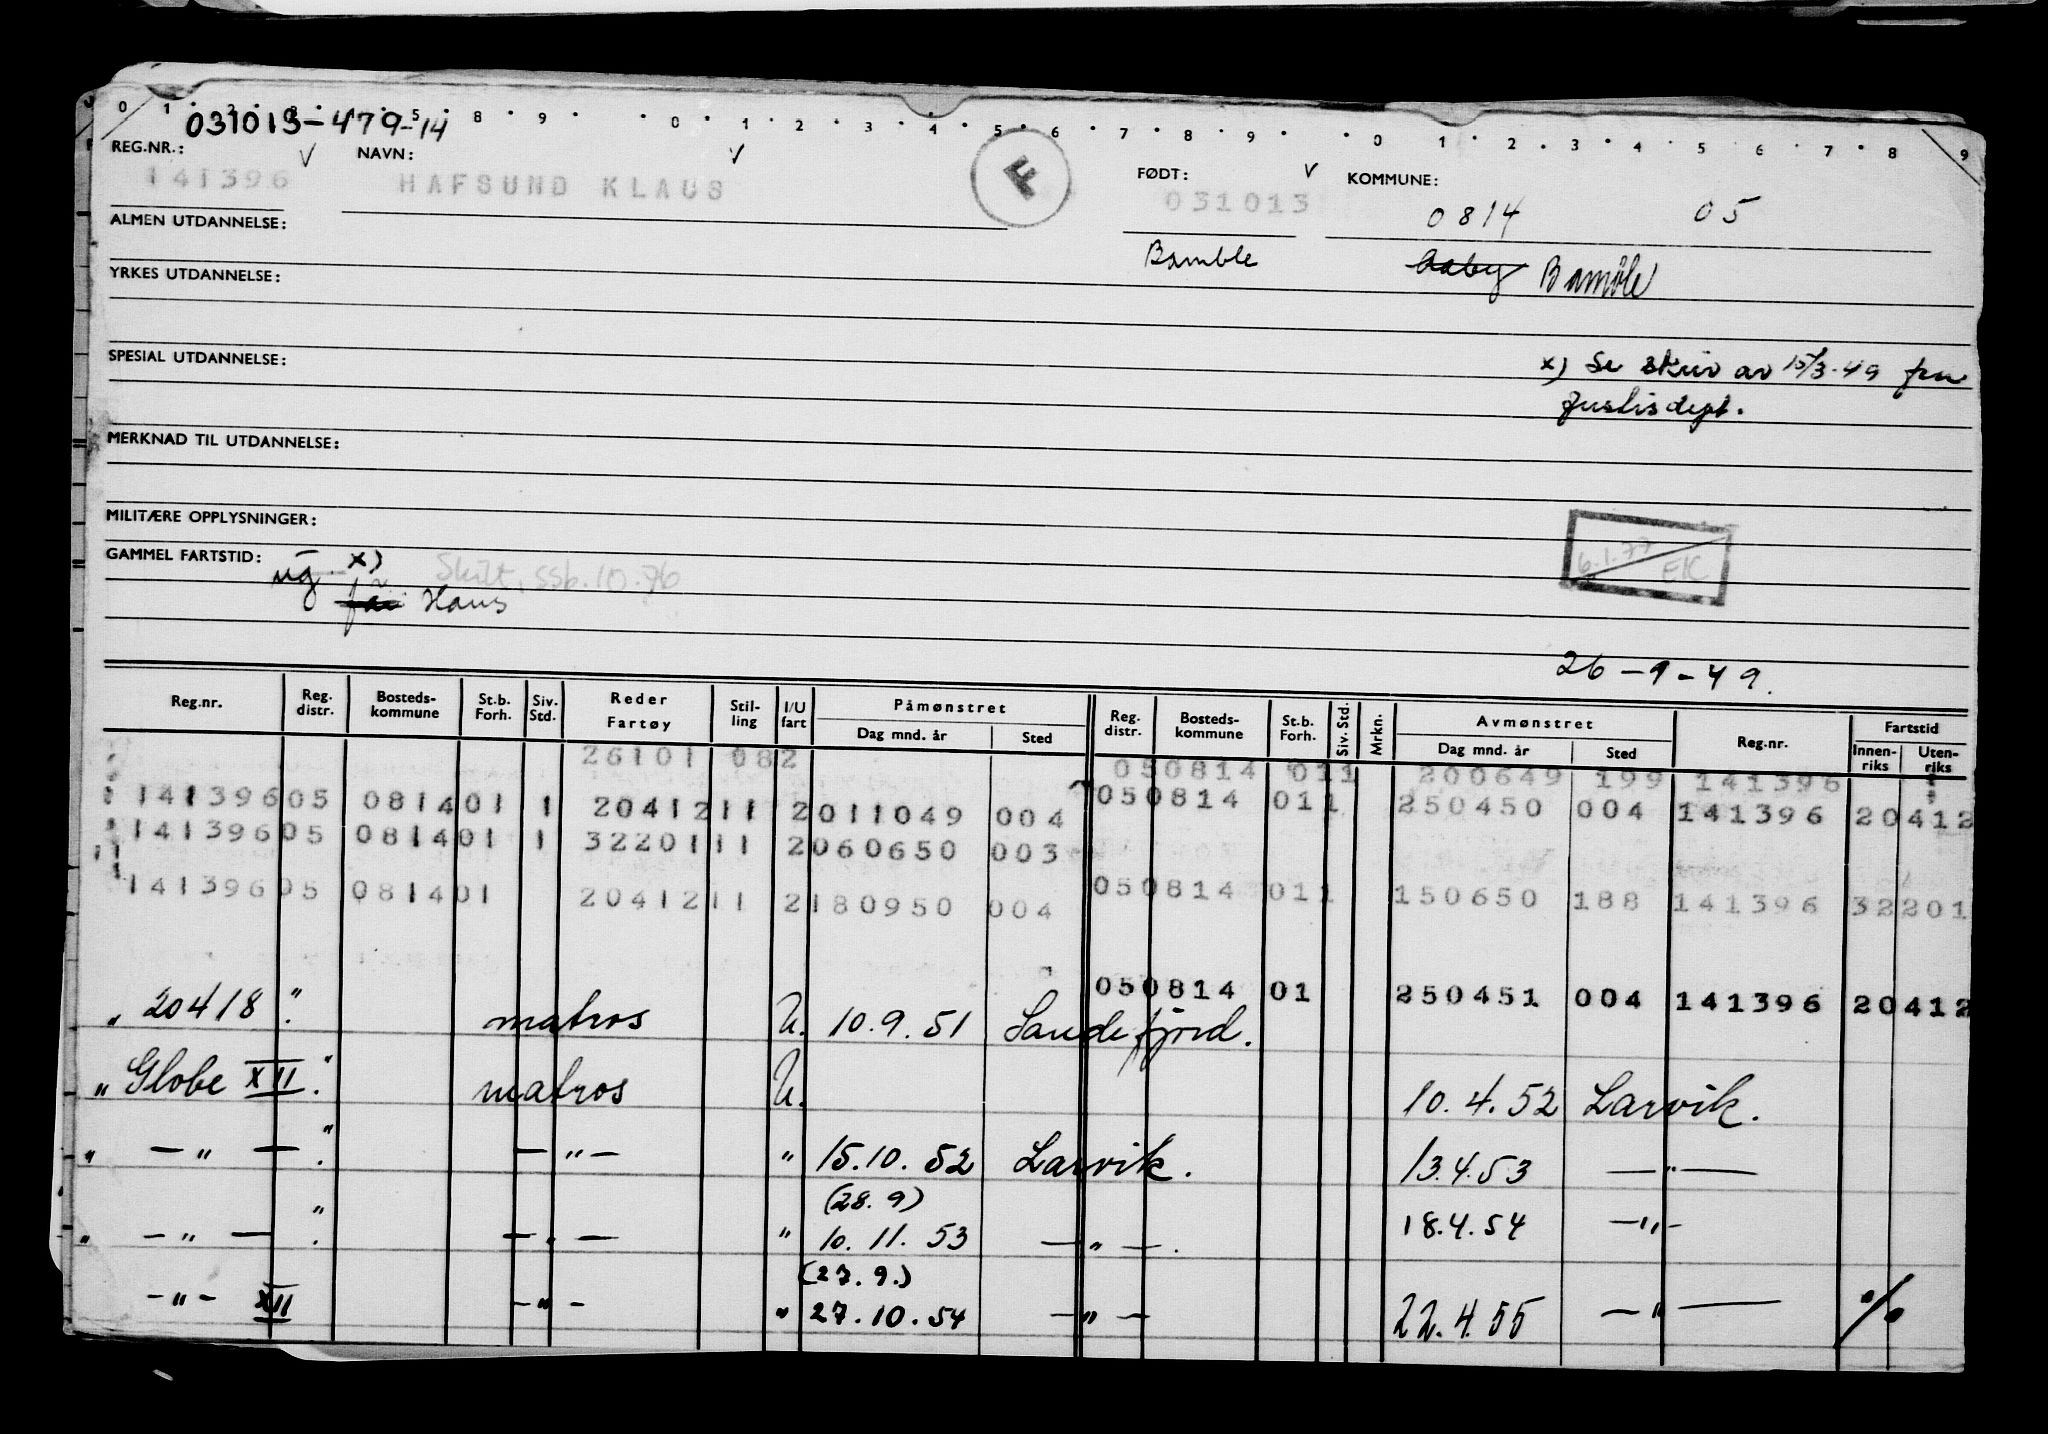 0 1 2 3 5 8 9 0 1 2 3 4 5 6 7 8 9 0 1 2 3 4 5 6 7 8 9
031013-479-14
REG.NR.: V NAVN: V FØDT: V KOMMUNE:
141396 HAFSUND KLAUS F 031013 0814 05
ALMEN UTDANNELSE: Bamble Bamble
YRKES UTDANNELSE:
SPESIAL UTDANNELSE: x) Se skriv av 15/3-49 fra
Justisdept.
MERKNAD TIL UTDANNELSE:
MILITÆRE OPPLYSNINGER:
6.1.77 EIC
GAMMEL FARTSTID: ug x) Skilt, ssb. 10.76
Hans
26-9-49.
Reg.nr. Reg. distr. Bosteds-kommune St.b. Forh. Siv. Std. Reder Fartøy Stil-ling I/U fart Påmønstret Dag mnd. år Sted Reg. distr. Bosteds-kommune St.b. Forh. Siv. Std. Mrkn. Avmønstret Dag mnd. år Sted Reg.nr. Fartstid Innen-riks Uten-riks
26101 082 050814 011 200649 199 141396
141396 05 0814 01 1 20412 11 2 011049 004 050814 011 250450 004 141396 20412
141396 05 0814 01 1 32201 11 2 060650 003
141396 05 0814 01 20412 11 2 180950 004 050814 011 150650 188 141396 32201
050814 01 250451 004 141396 20412
" 20418 " matros U. 10.9.51 Sandefjord.
" Globe XII " matros U. 10.4.52 Larvik.
" — " — " — " — " 15.10.52 Larvik. 13.4.53 — " —
(28.9)
" — " — " — " — " 10.11.53 — " —. 18.4.54 — " —
(27.9.)
— " — XII — " — " 27.10.54 — " — 22.4.55 — " — %